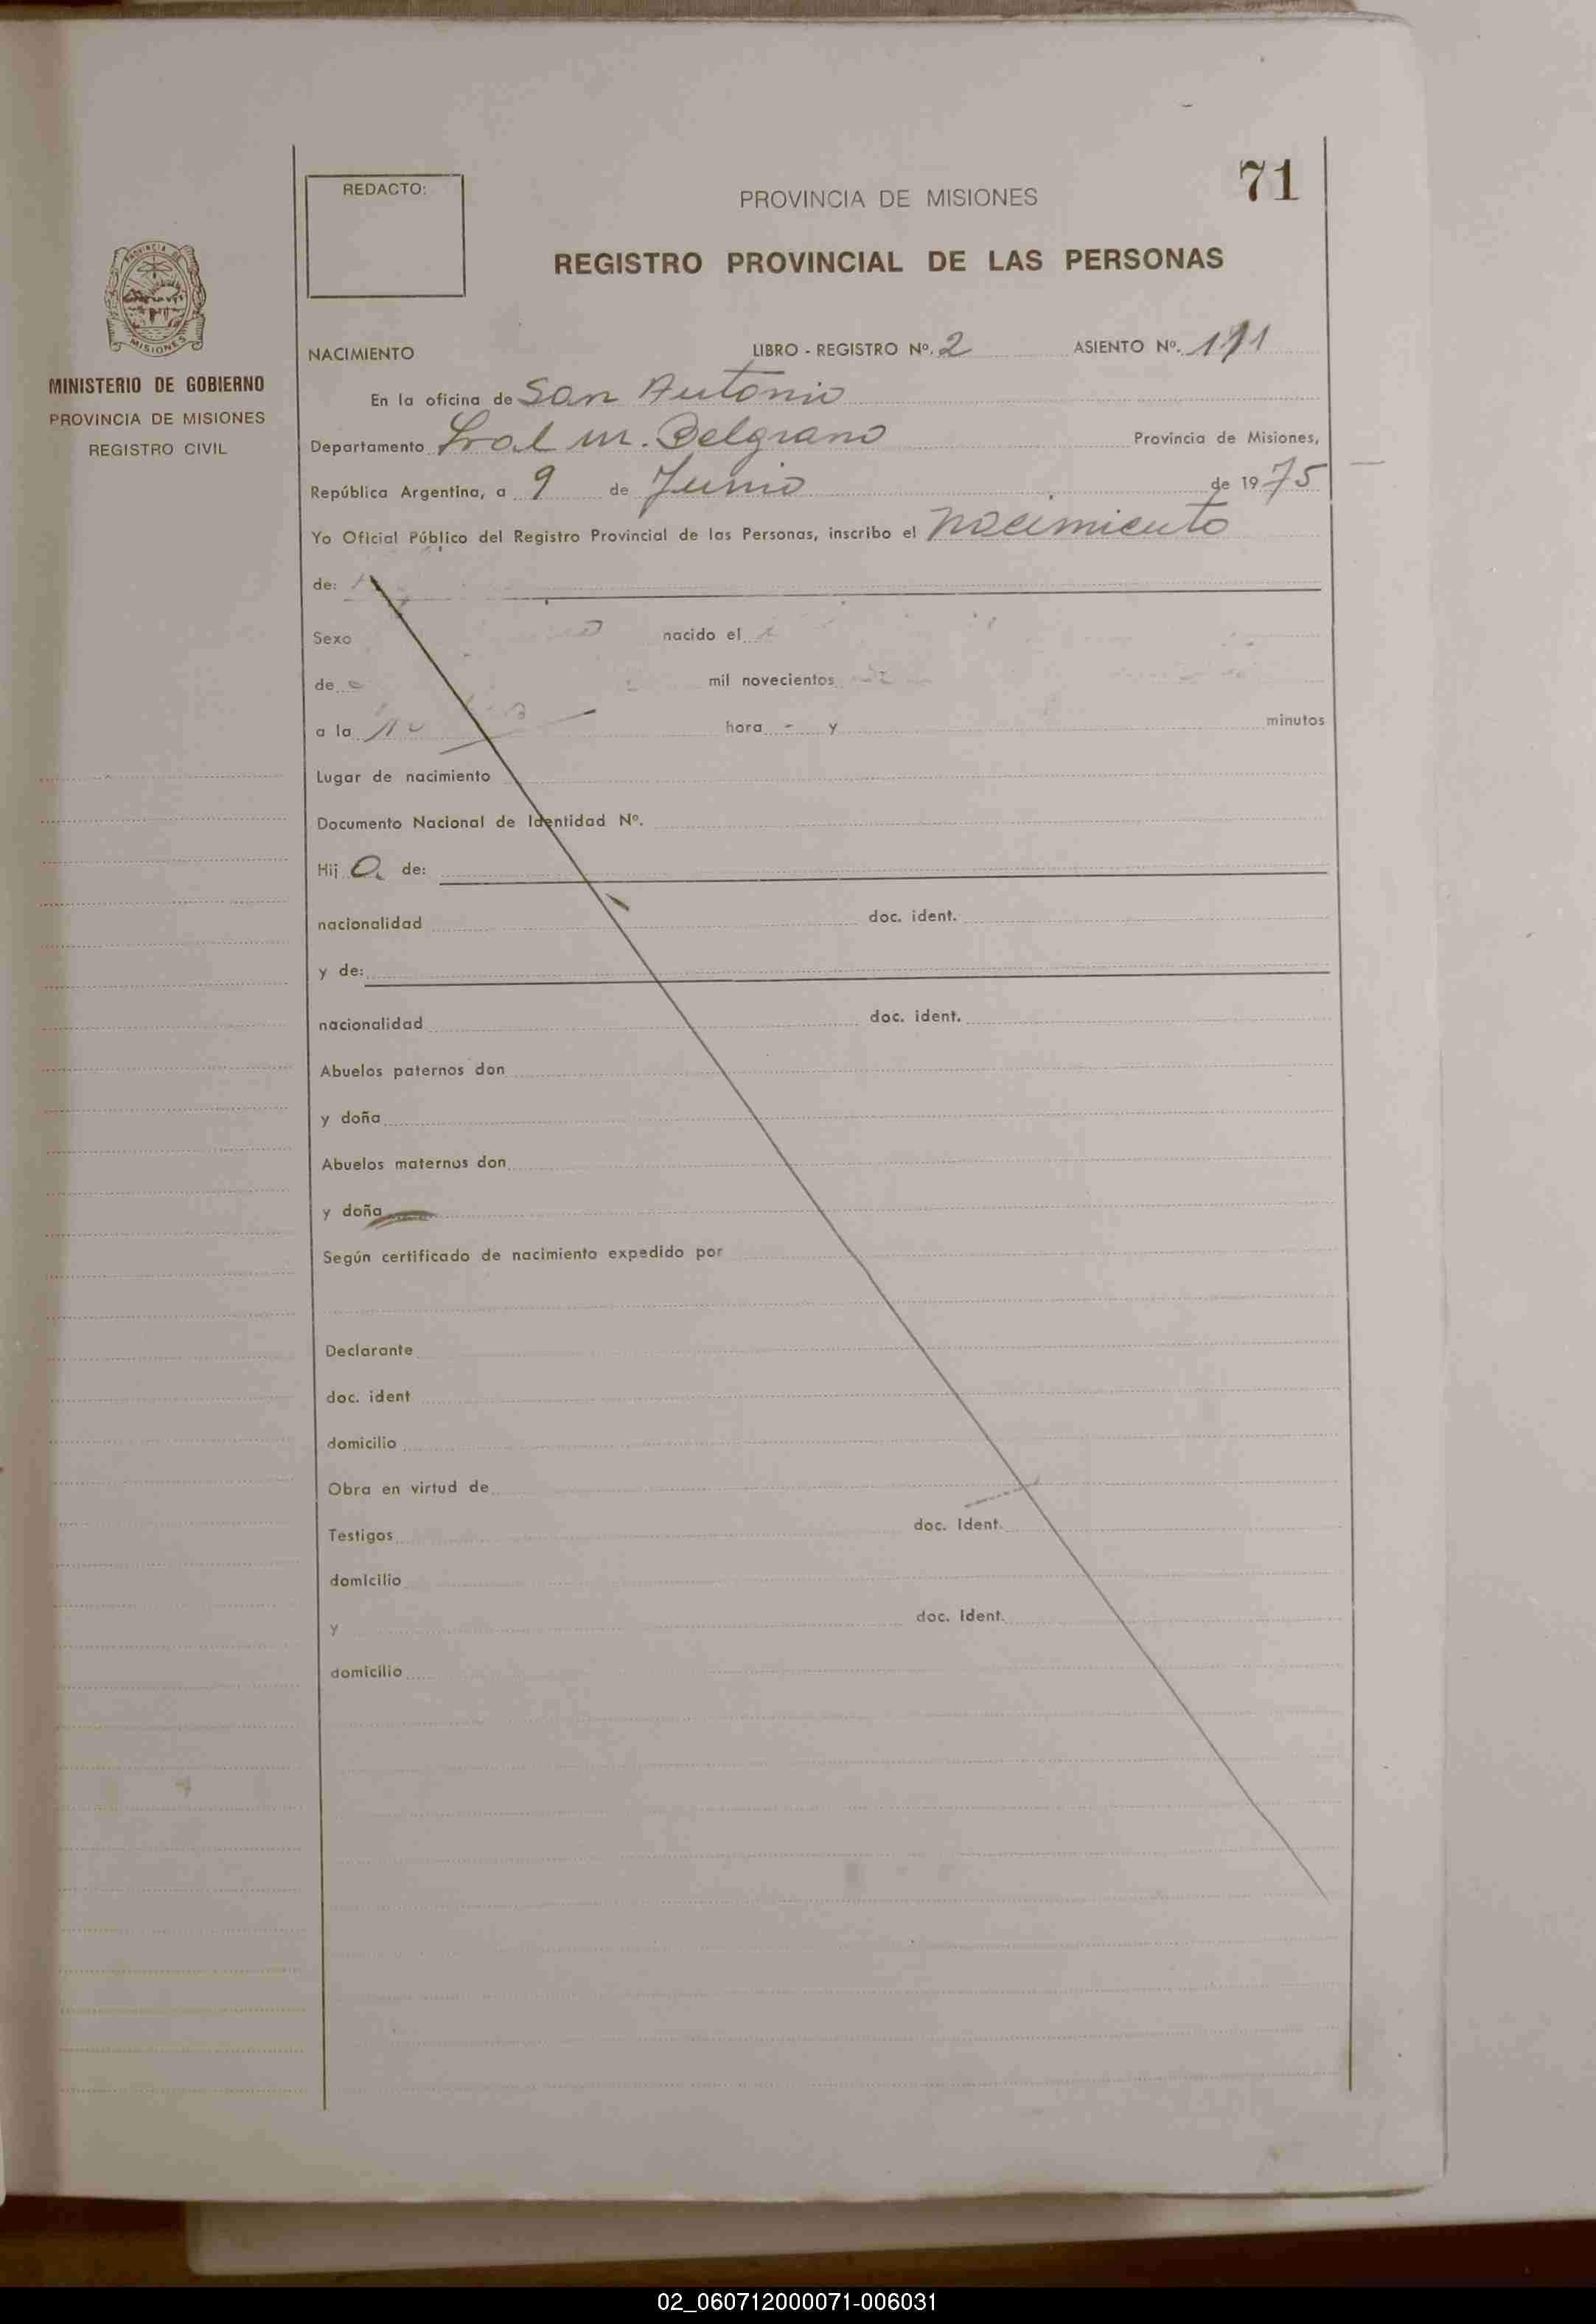 71
REDACTO:
PROVINCIA DE MISIONES
REGISTRO PROVINCIAL DE LAS PERSONAS
PROVINCIA DE
MISIONES
MINISTERIO DE GOBIERNO
PROVINCIA DE MISIONES
REGISTRO CIVIL
NACIMIENTO LIBRO - REGISTRO Nº. 2 ASIENTO Nº.
En la oficina de San Antonio
Departamento Gral M. Belgrano Provincia de Misiones,
República Argentina, a 9 de Junio de 1975
Yo Oficial Público del Registro Provincial de las Personas, inscribo el nacimiento
de:
Sexo nacido el
de mil novecientos
a la hora - y minutos
Lugar de nacimiento
Documento Nacional de Identidad Nº.
Hij o de:
nacionalidad doc. ident.
y de:
nacionalidad doc. ident.
Abuelos paternos don
y doña
Abuelos maternos don
y doña
Según certificado de nacimiento expedido por
Declarante
doc. ident
domicilio
Obra en virtud de
Testigos doc. Ident.
domicilio
y doc. Ident.
domicilio
02_060712000071-006031